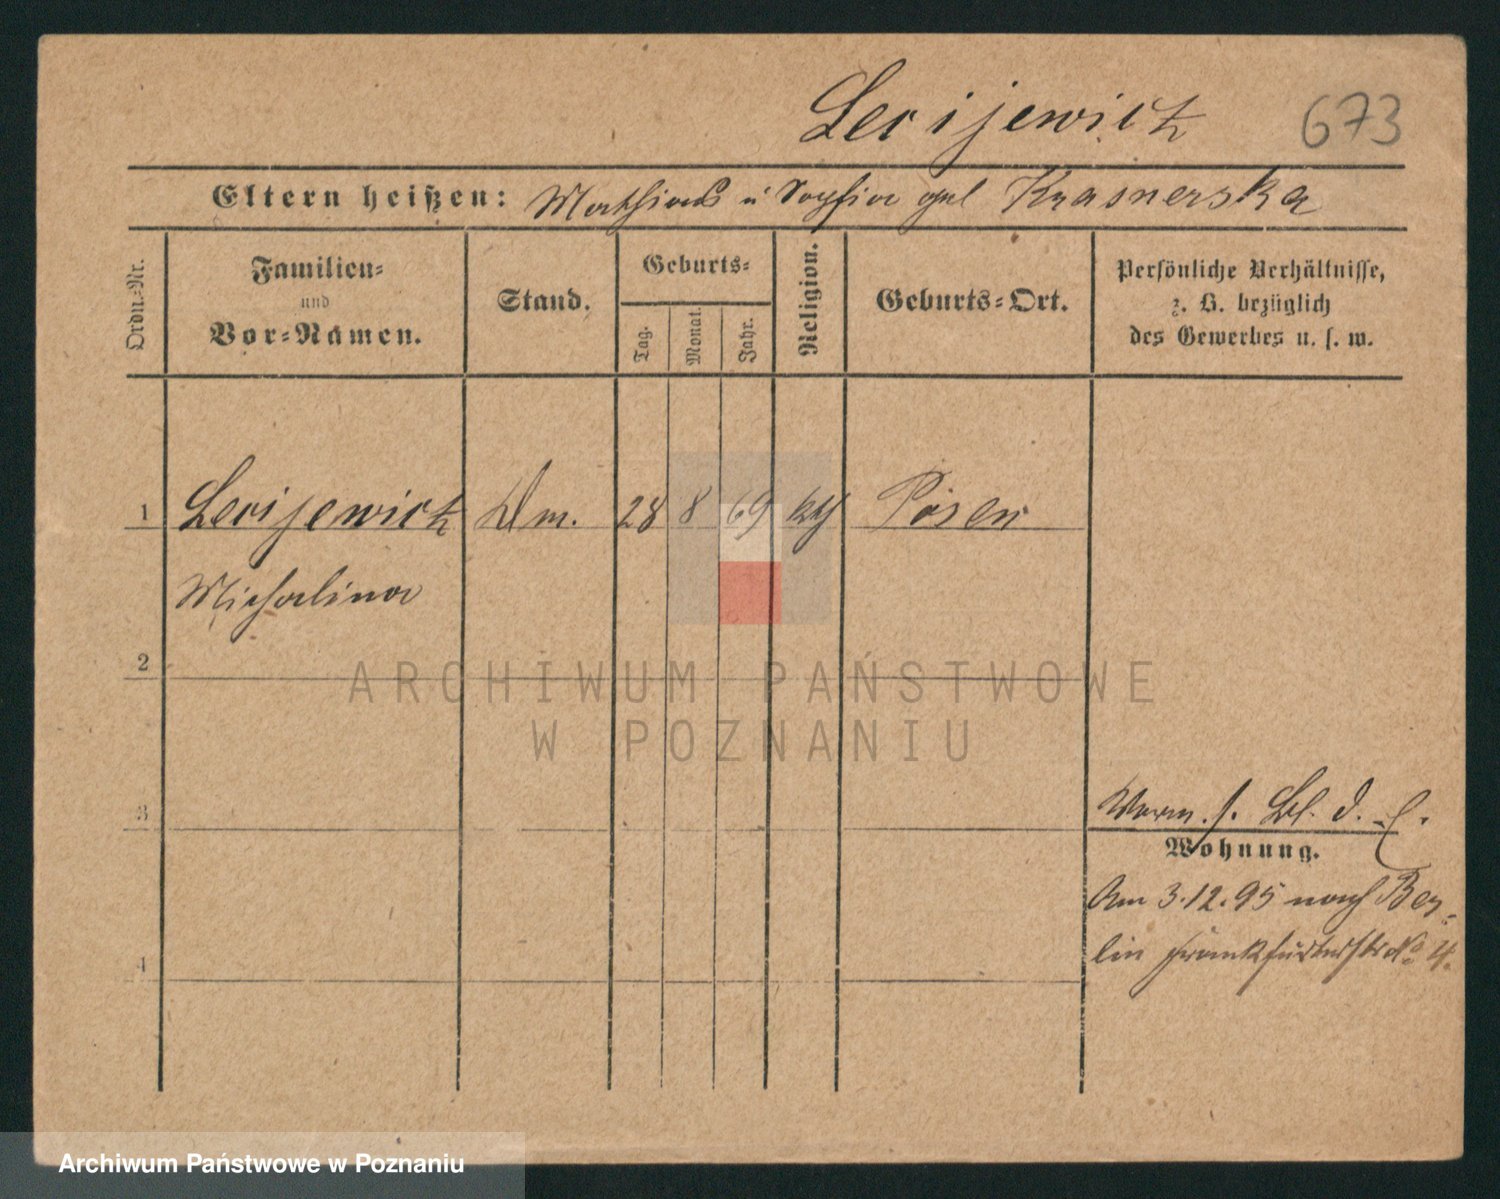 Lerijewicz 673
Eltern heißen: Mathias u Sophia geb Krasnerska
Ordn.-Nr.
Familien-
und
Vor-Namen.
Stand.
Geburts-
Tag.
Monat.
Jahr.
Religion.
Geburts-Ort.
Persönliche Verhältnisse,
z. B. bezüglich
des Gewerbes u. s. w.
1 Lerijewicz 28 8 69 kth Posen
Michalina
2
ARCHIWUM PAŃSTWOWE
W POZNANIU
3
Wohnung.
Am 3.12.95 nach Ber-
lin Frankfurterstr No 4.
4
Archiwum Państwowe w Poznaniu